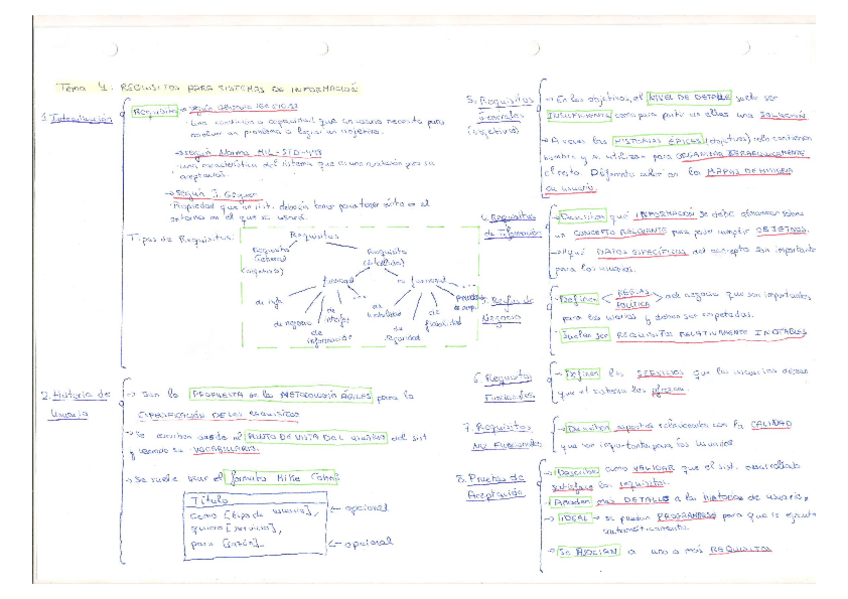 Tema 4: REQUISITOS PARA SISTEMAS DE INFORMACIÓN
1. Introducción
Requisito → según
Una condición o capacidad que un usuario necesita para
resolver un problema o lograr un objetivo.
→ según Norma MIL-STD-498
una característica del sistema que es una condición para su
aceptación.
→ según J. Goguen
Propiedad que un sist. debería tener para tener éxito en el
entorno en el que se usará.
Tipos de Requisitos:
Requisitos
Requisito General (objetivos)
Requisito (detallado)
funcional
no funcional
de info.
de negocio
de interfaz
de información
de fiabilidad
de seguridad
pruebas de acep.
2. Historia de Usuario
→ Son la PROPUESTA de las METODOLOGÍA ÁGILES para la
ESPECIFICACIÓN DE LOS REQUISITOS
→ Se escriben desde el PUNTO DE VISTA DEL usuario del sist
y usando su VOCABULARIO.
→ Se suele usar el formato Mike Cohn:
Título
Como [tipo de usuario], ← opcional
quiero [servicio],
para [razón]... ← opcional
3. Requisitos Generales (objetivos)
→ En los objetivos, el NIVEL DE DETALLE suele ser
INSUFICIENTE como para partir de ellos una SOLUCIÓN.
→ A veces las HISTORIAS ÉPICAS (objetivos) solo contienen
nombre y se utilizan para ORGANIZAR JERÁRQUICAMENTE
el resto. Diferente rol en los MAPAS DE HISTORIA
DE USUARIO.
4. Requisitos de Información
→ Describen qué INFORMACIÓN se debe almacenar sobre
un CONCEPTO RELEVANTE para poder cumplir OBJETIVOS.
→ qué DATOS ESPECÍFICOS del concepto son importante
para los usuarios.
5. Reglas de Negocio
→ Definen REGLAS POLÍTICA de negocio que son importantes
para los usuarios y deben ser respetadas.
Suelen ser REQUISITOS RELATIVAMENTE INESTABLES
6. Requisitos Funcionales
→ Definen los SERVICIOS que los usuarios desean
que el sistema les ofrezca.
7. Requisitos No Funcionales
→ Describen aspectos relacionados con la CALIDAD
que son importante para los usuarios
8. Pruebas de Aceptación
→ Describen como VALIDAR que el sist. desarrollado
satisface los requisitos.
Añaden más DETALLE a las historias de usuario,
→ IDEAL → se puedan PROGRAMARSE para que se ejecuten
automáticamente.
→ Se ASOCIAN a uno o más REQUISITO